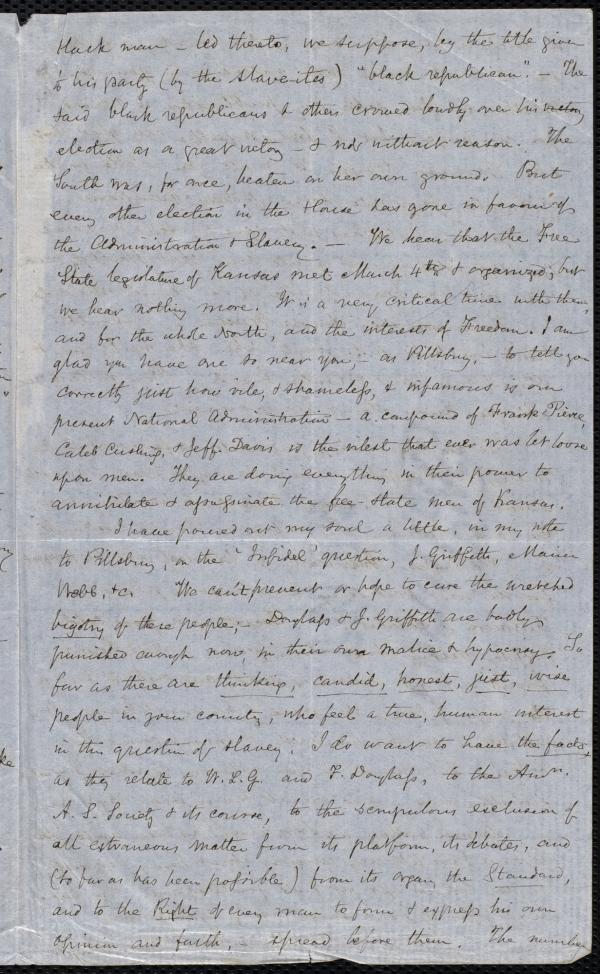 black man – led thereto, we suppose, by the title given
to his party (by the slaveites) "black republican". – The
said black republicans & others crowed loudly over his victory
election as a great victory – & not without reason. The
South was, for once, beaten on her own ground. But
every other election in the House has gone in favour of
the Administration & Slavery. – We hear that the Free
State legislature of Kansas met March 4th & organized, but
we hear nothing more. It is a very critical time with them,
and for the whole North, and the interests of Freedom. I am
glad you have one so near you, – as Pillsbury, – to tell you
correctly just how vile, & shameless, & infamous is our
present National Administration – a compound of Frank Pierce,
Caleb Cushing, & Jeff. Davis is the vilest that ever was let loose
upon men. They are doing everything in their power to
annihilate & assassinate the free-state men of Kansas.
I have poured out my soul a little, in my note
to Pillsbury, on the 'Infidel' question, J. Griffith, Maria
Webb, &c. We can't prevent or hope to cure the wretched
bigotry of these people, – Douglass & J. Griffith are badly
punished enough now, in their own malice & hypocrisy. So
far as there are thinking, candid, honest, just, wise
people in your country, who feel a true, human interest
in this question of slavery, I do want to have the facts,
as they relate to W. L. G. and F. Douglass, to the Amn.
A. S. Society & its course, to the scrupulous exclusion of
all extraneous matter from its platform, its debates, and
(so far as has been possible) from its organ, the Standard,
and to the Right of every man to form & express his own
opinion and faith, – spread before them. The number